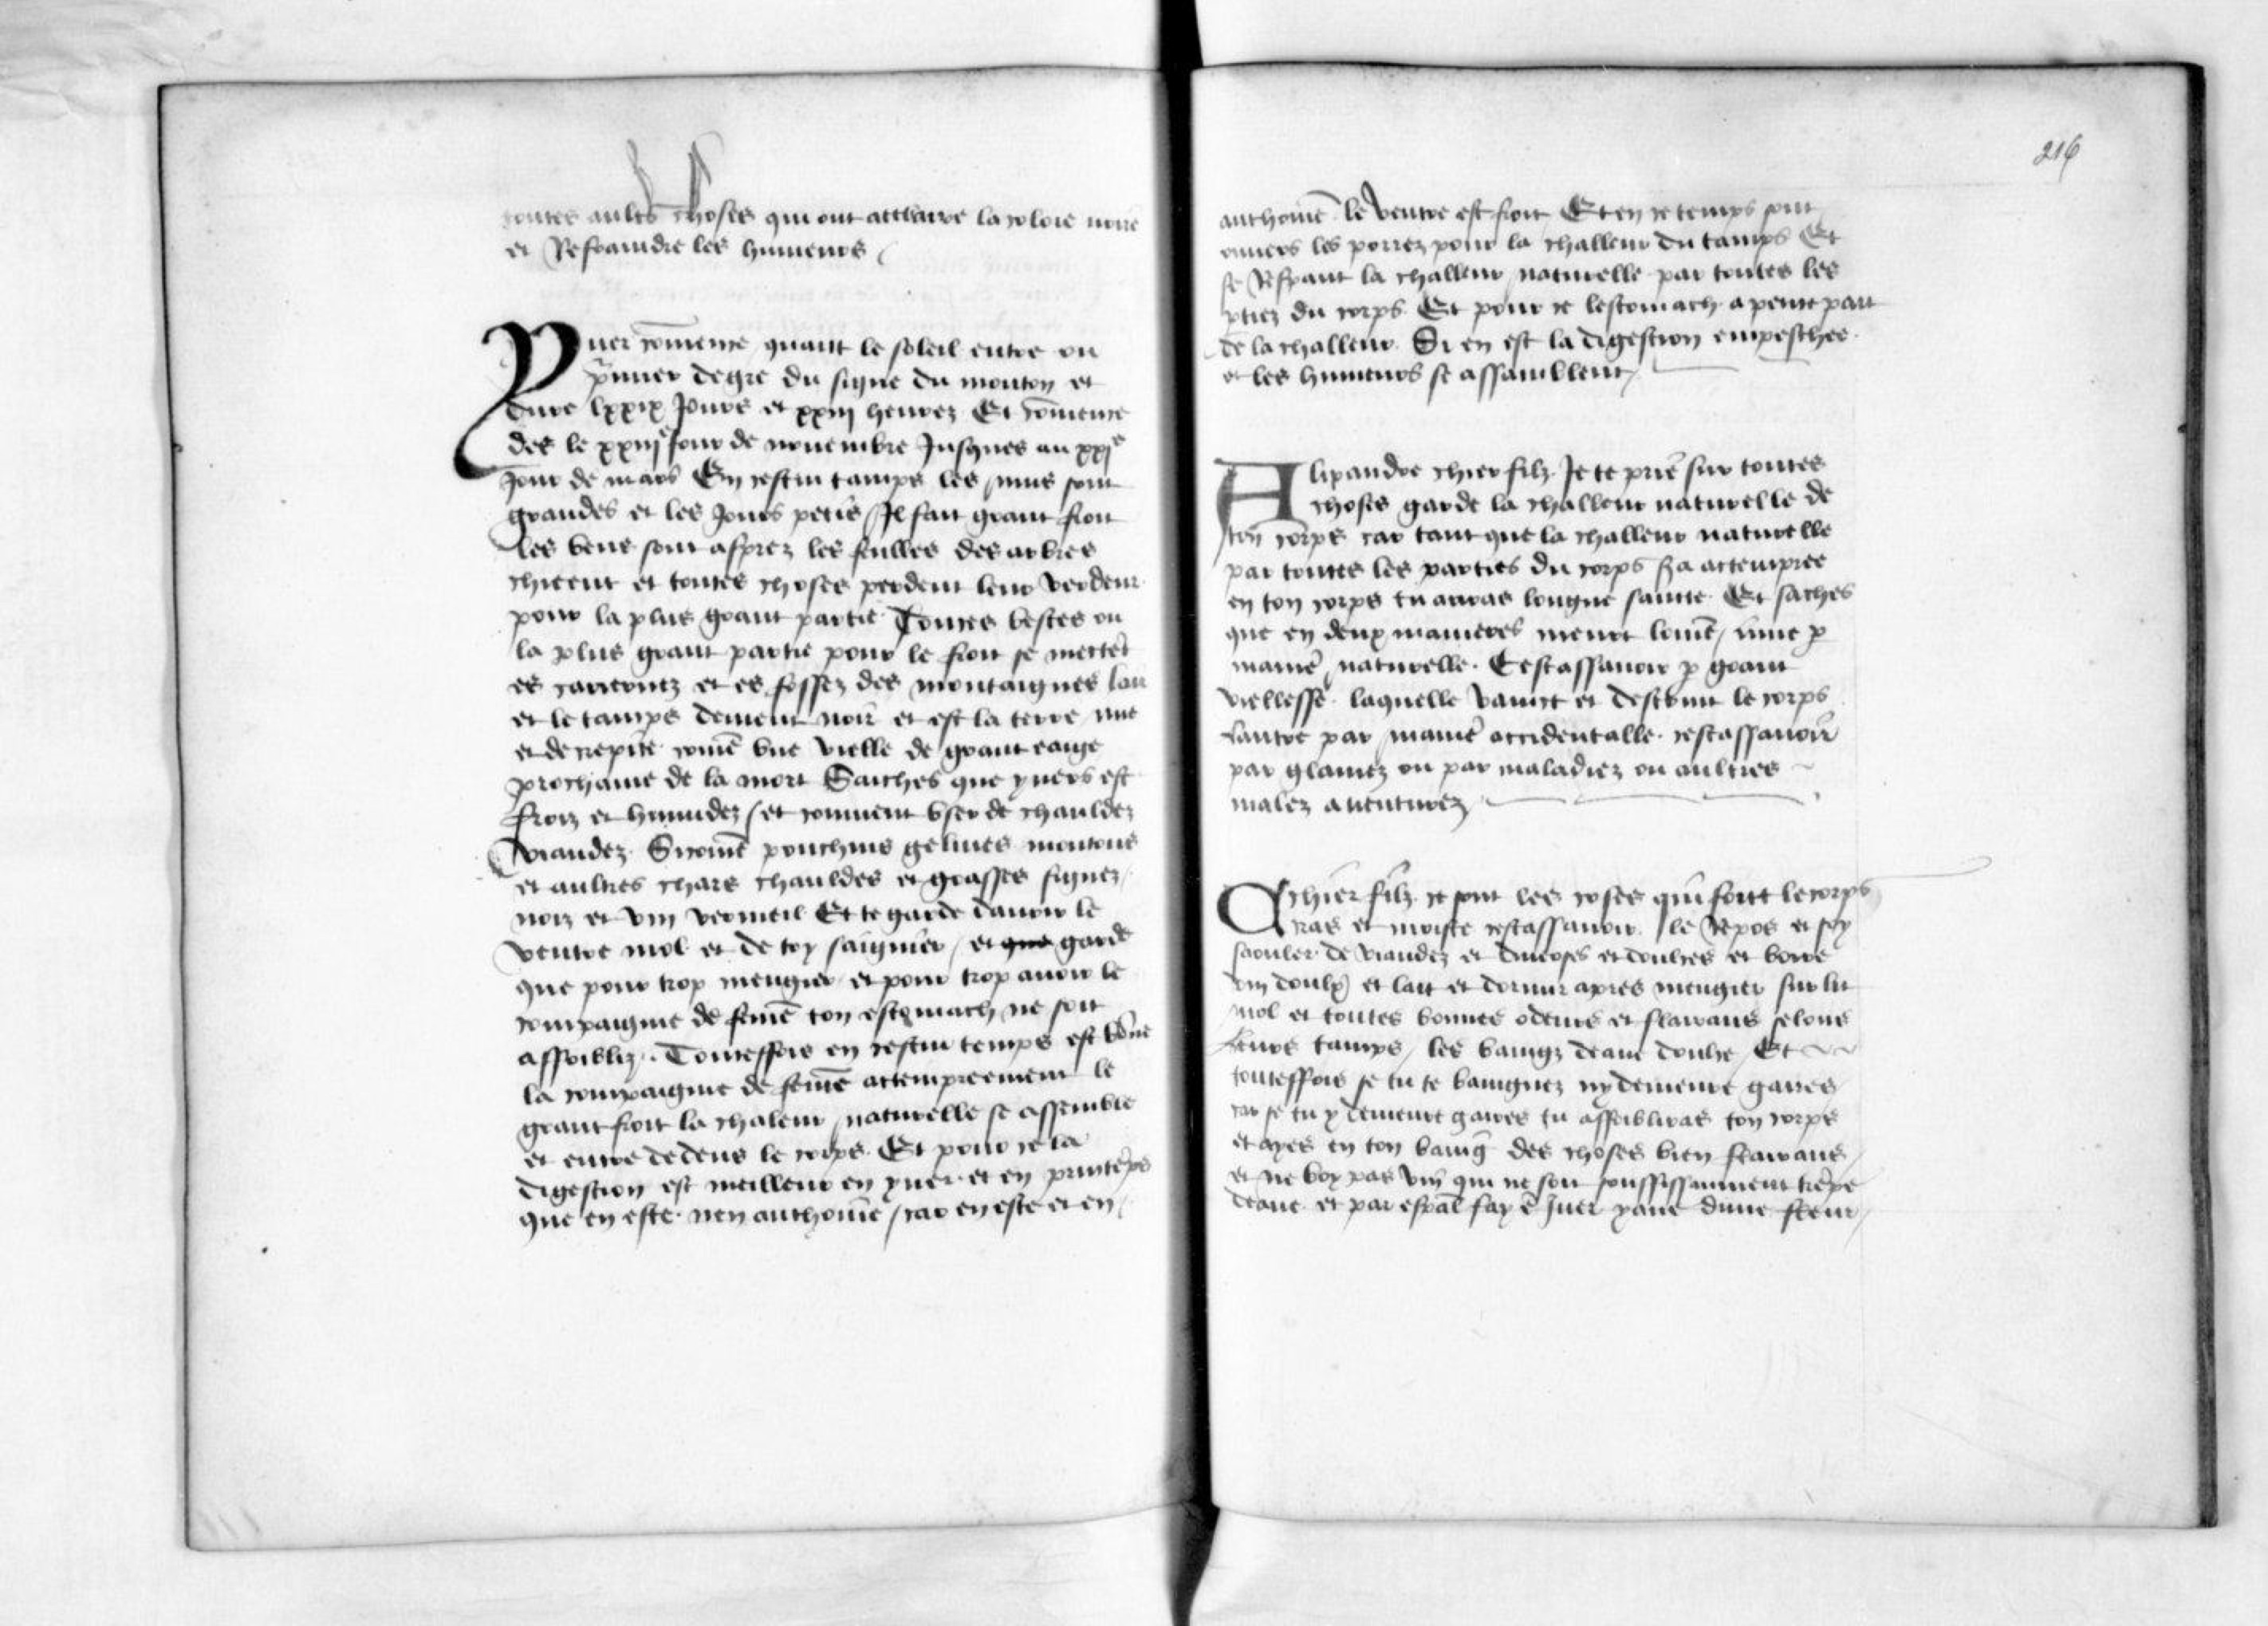 toutes aultres choses qui ont attraire la colore noire
et Refraindre les humeurs
Yuer cōmence quant le soleil entre ou
p̄mier degre du signe du mouton et
dure lxxix Jours et xxiij heurez Et cōmence
des le xxiijᵉ Jour de nouembre Jusques au xxjᵉ
Jour de mars En cestui tamps les nuis sont
grandes et les Jours petis Il fait grant froit
les vens sont asprez les fuilles des arbres
chieent et toutes choses perdent leur verdeur
pour la plus grant partie Toutes bestes ou
la plus grant partie pour le froit se mettēt
es cauernez et es fossez des montaignes lair
et le tamps deuient noir et est la terre nue
et decrepite comē vne vielle de grant eaige
prochaine de la mort Saiches que yuers est
froiz et humidez et conuient vser de chauldez
viandez Sicomē pouchins gelines moutons
et aultres chars chauldes et grasses figuez
noiz et vin vermeil Et te garde dauoir le
ventre mol et de toy saignier et que garde
que pour trop mengier et pour trop auoir le
compaignie de femē ton estomach ne soit
affoibliz Touteffois en cestui temps est bōne
la compaignie de femē attempreement le
grant froit la chaleur naturelle se assemble
et entre dedens le corps Et pour ce la
digestion est meilleur en yuer et en printēps
que en este nen anthomne car en este et en
216
anthomē le ventre est froit Et en ce temps sont
ouuers les porrez pour la challeur du tamps Et
se Respant la challeur naturelle par toutes les
ptiez du corps Et pour ce lestomach a petite part
de la challeur Si en est la digestion empeschee
et les humeurs se assamblent
Alixandre chier filz Je te prie sur toutes
choses garde la challeur naturelle de
ton corps car tant que la challeur naturelle
par toutes les parties du corps sera attempree
en ton corps tu auras longue sante Et saches
que en deux manieres meurt lomē lune p
maniē naturelle Cestassauoir p grant
viellesse laquelle vainct et destruit le corps
lautre par maniē accidentalle cestassauoir
par glaiuez ou par maladiez ou aultres
malez auenturez
O chier filz ce sont les coses qui font le corps
cras et moiste cestassauoir le Repos et soy
saouler de viandez et diuerses et doulces et boire
vin doulx et lait et dormir apres mengier sur lit
mol et toutes bonnes odeurs et flairans selons
leurs tamps les baingz deaue doulce Et
touteffois se tu te baignez ny demeure gaires
car se tu y demeure gaires tu affoibliras ton corps
et ayes en ton baing des choses bien flairans
et ne boy pas vin qui ne soit souffissamment trēpe
deaue et par espāl fay ē Juer yaue dune fleur